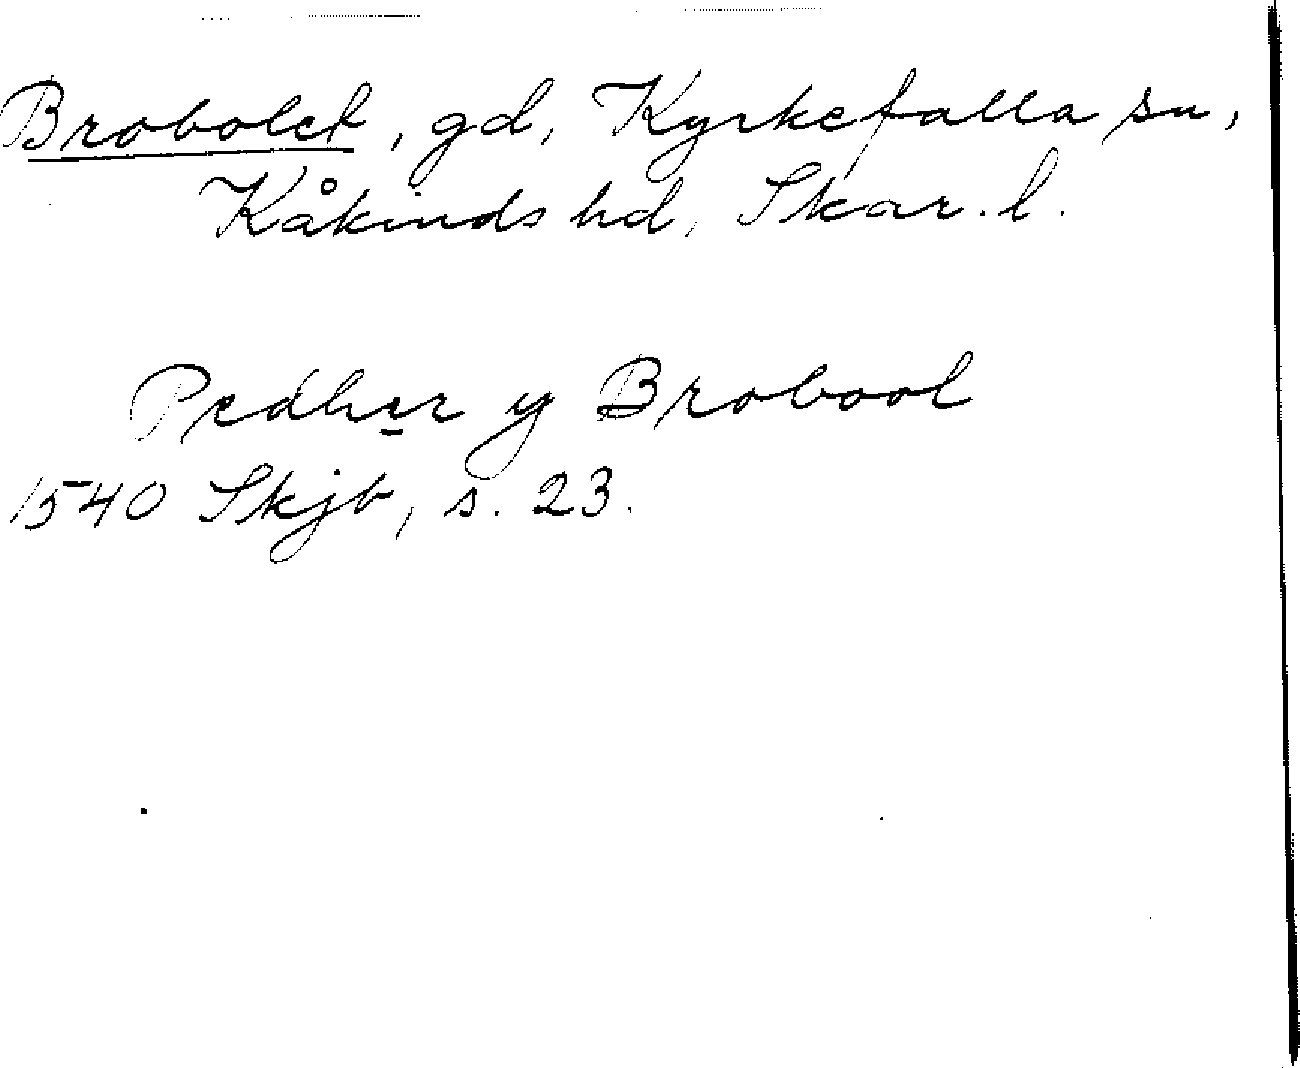 Brobolet, gd, Kyrkefalla sn,
Kåkinds hd, Skar. l.
Pedher y Brobool
1540 Skjb, s. 23.